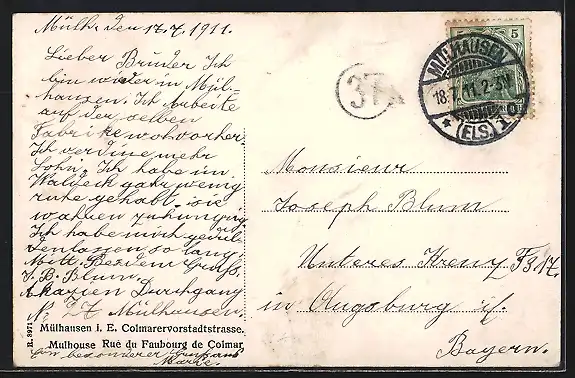 Mülh. den 17.7.1911.
Lieber Bruder Ich
bin wieder in Mül-
hausen. Ich Arbeite
auf der selben
Fabrike wo vorher.
Ich verdine mehr
Lohn. Ich habe im
Waldeck gahr wenig
ruhe gehabt. sie
wahren zu hungrig
Ich habe mich
so lang
Mitt. Besten Grus.
J. B. Blum.
Akazien Durchgang
No 27 Mülhausen.
Mülhausen i. E. Colmarervorstadtstrasse.
Mulhouse Rue du Faubourg de Colmar
besonderer Grus aus
R. 3971
37
5
MÜLHAUSEN
18.7.11. 2-3N
* (ELS.) 1
Monsieur
Joseph Blum
Unteres Kreuz F 317.
in Augsburg
Bayern.